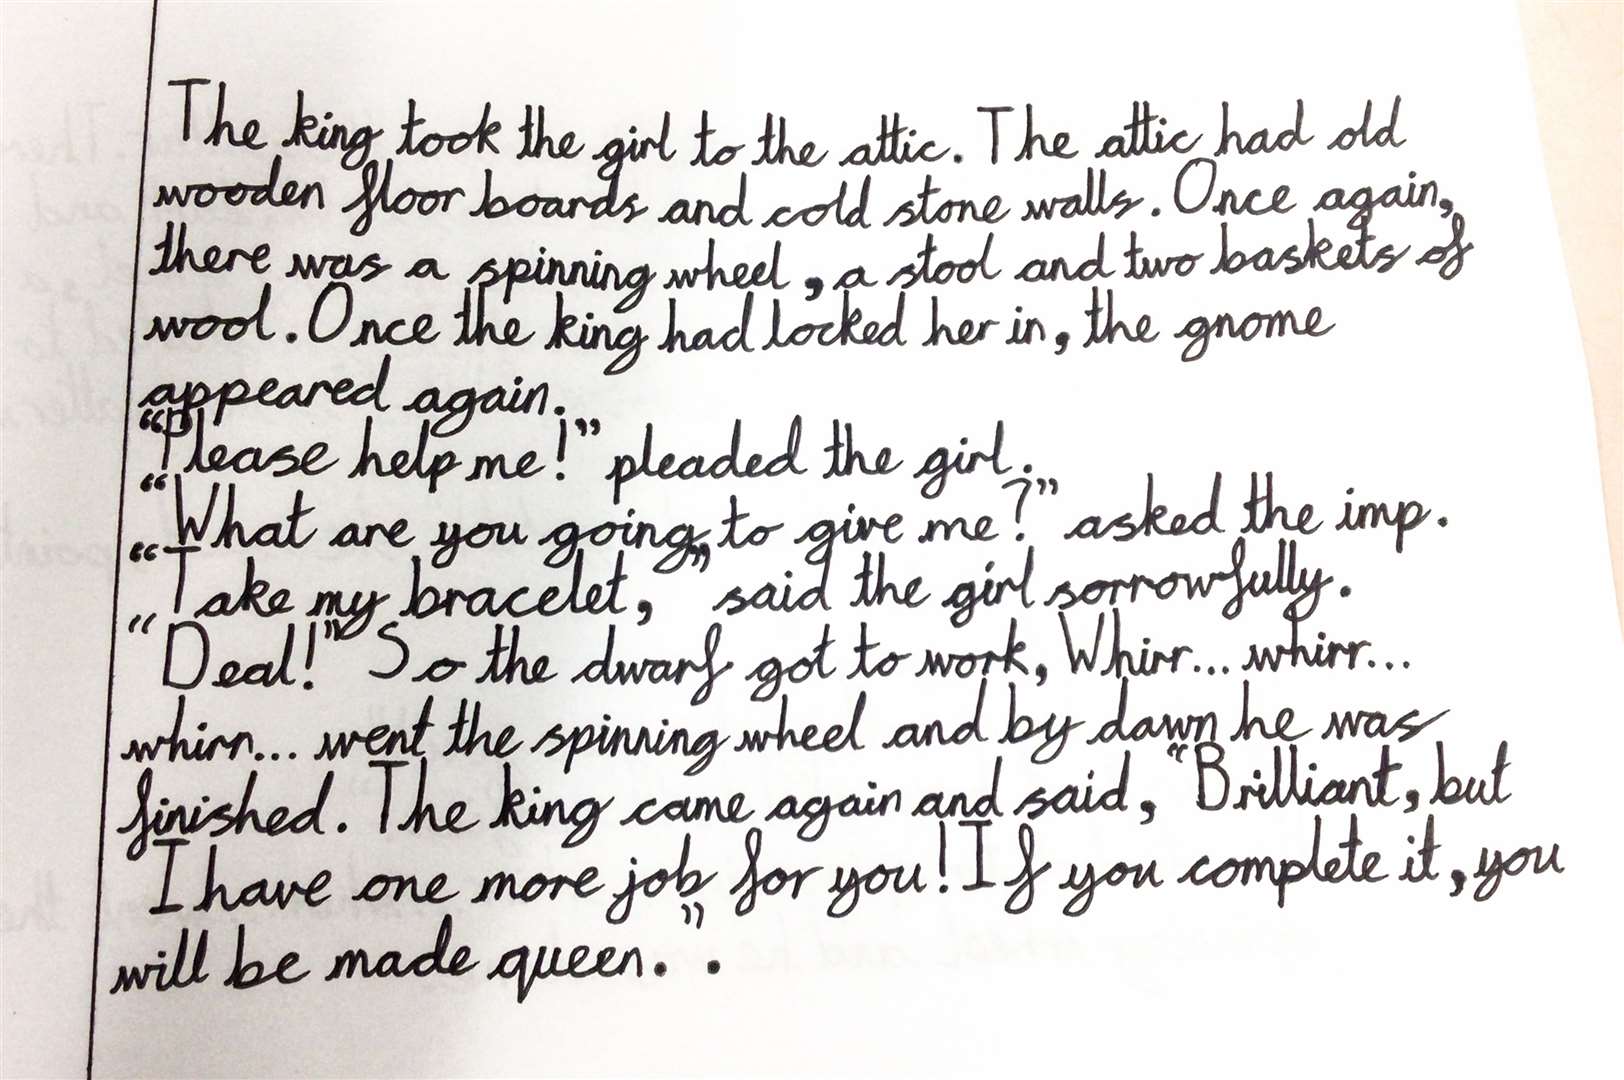 The king took the girl to the attic. The attic had old
wooden floor boards and cold stone walls. Once again,
there was a spinning wheel, a stool and two baskets of
wool. Once the king had locked her in, the gnome
appeared again.
“Please help me!” pleaded the girl.
“What are you going to give me?” asked the imp.
“Take my bracelet,” said the girl sorrowfully.
“Deal!” So the dwarf got to work, Whirr... whirr...
whirr... went the spinning wheel and by dawn he was
finished. The king came again and said, “Brilliant, but
I have one more job for you! If you complete it, you
will be made queen.”.